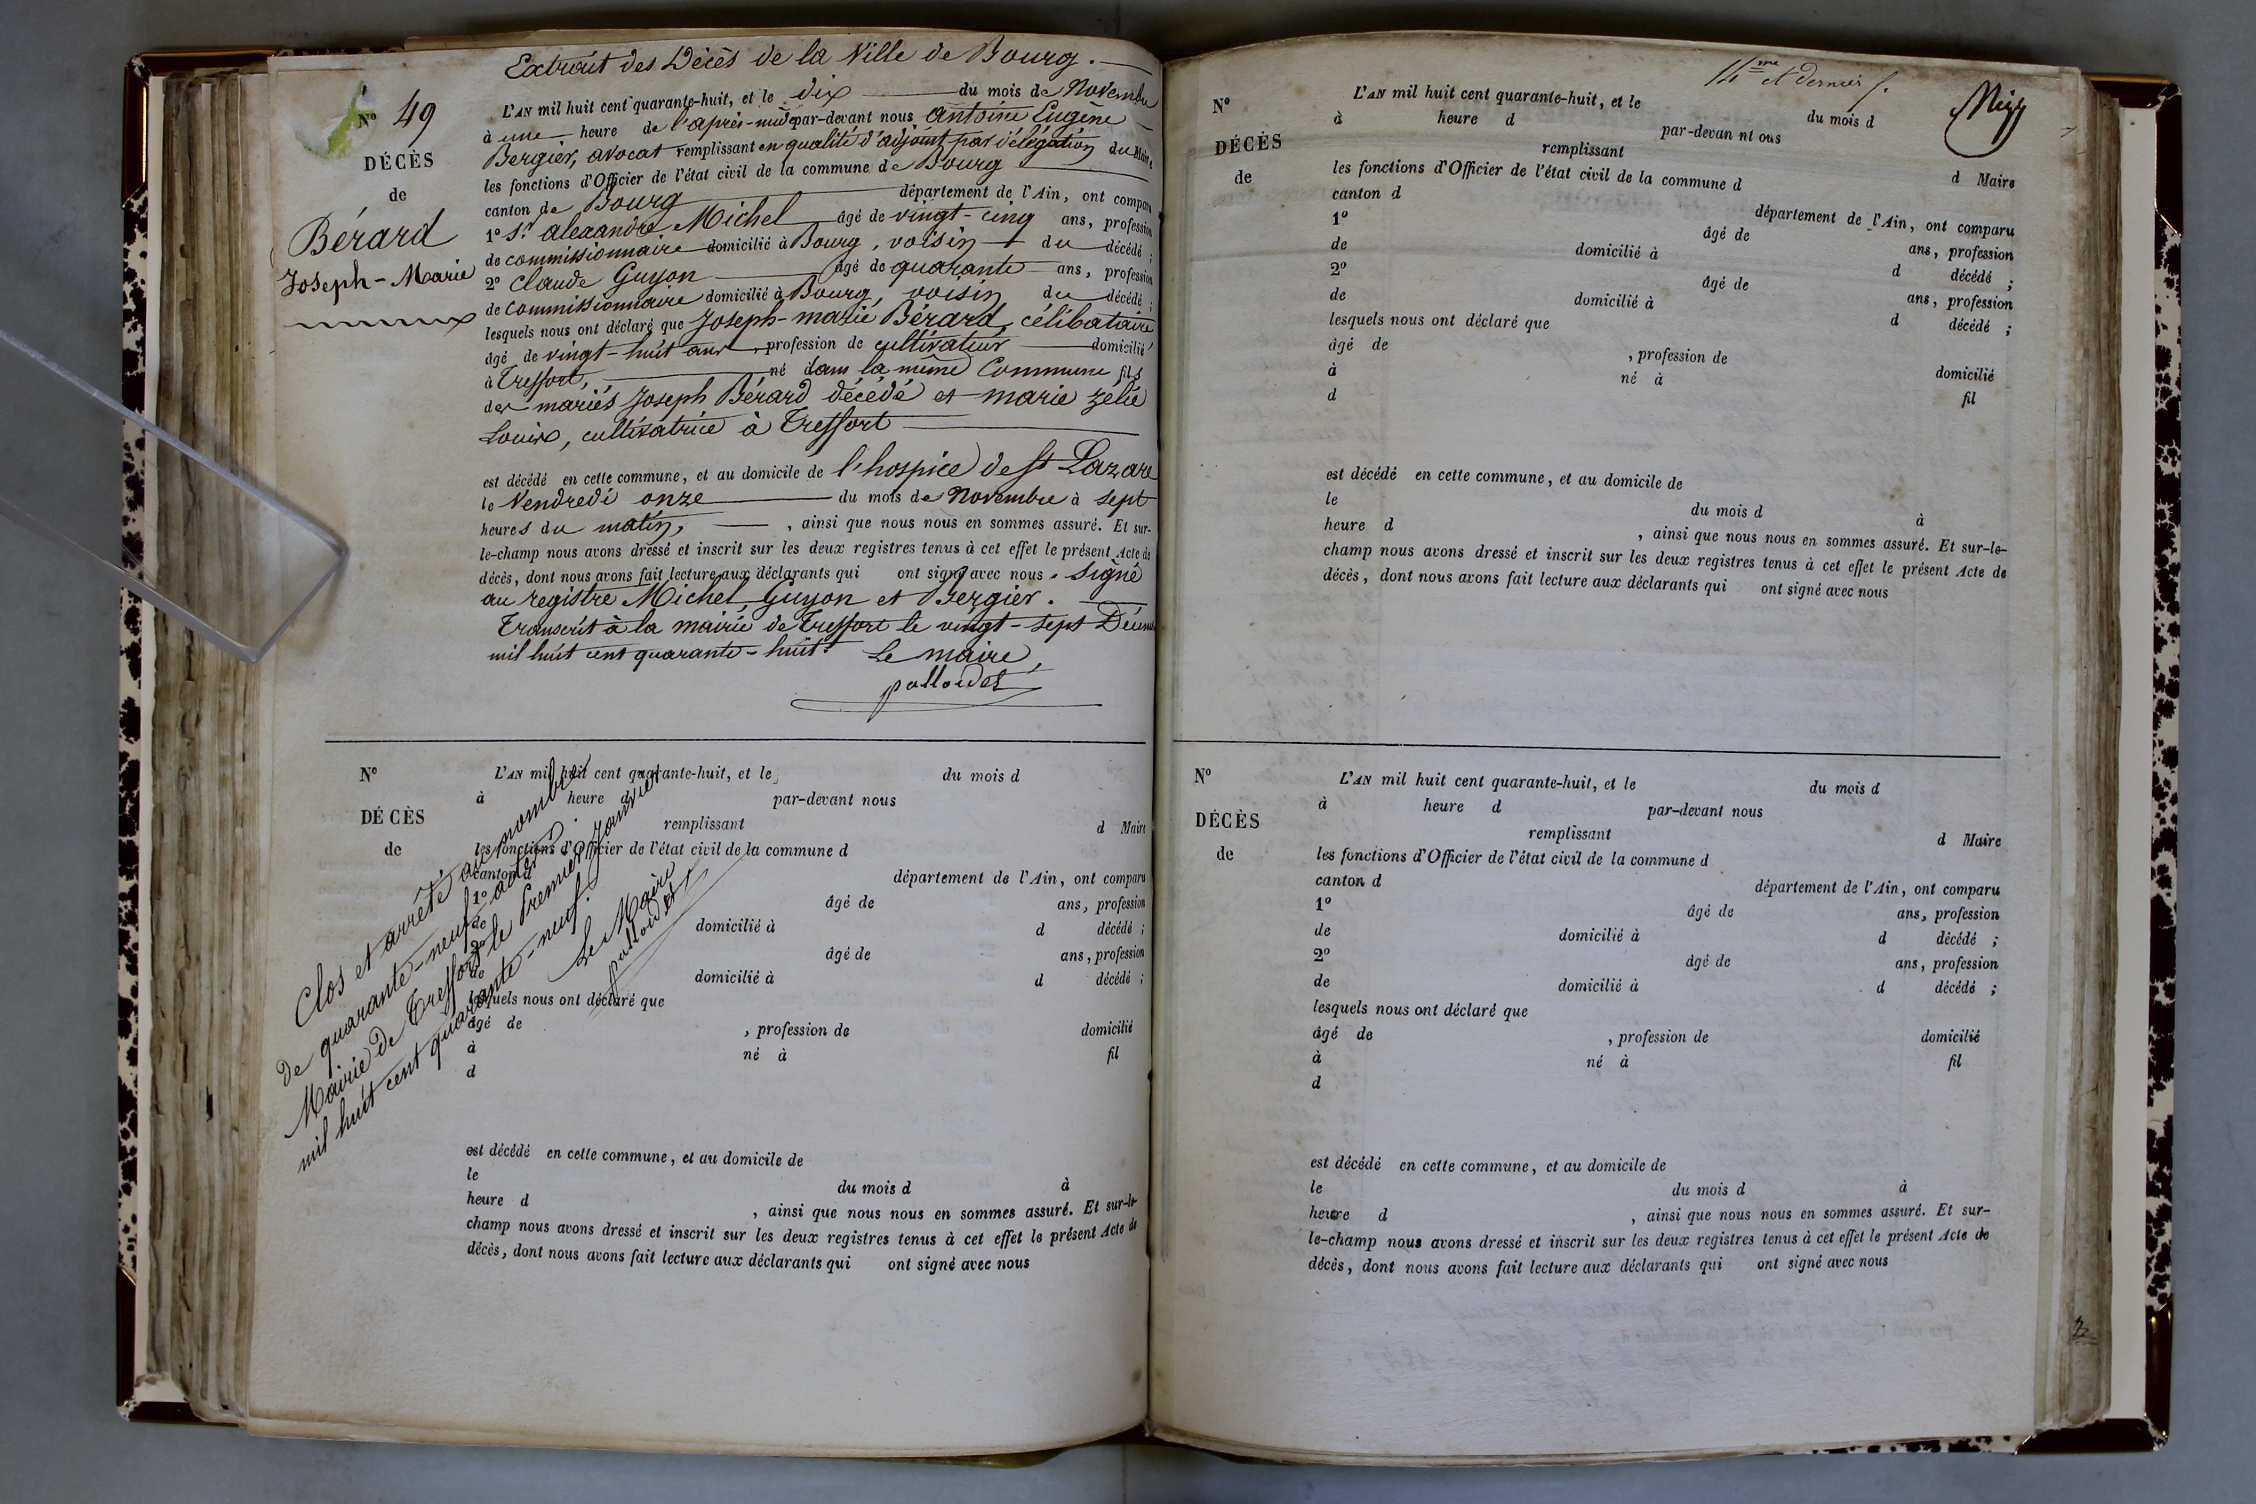 Extrait des Décès de la Ville de Bourg.
N° 49
DÉCÈS
de
Bérard
Joseph-Marie
L'AN mil huit cent quarante-huit, et le dix du mois de Novembre
à une heure de l'après-midi par-devant nous Antoine Eugène
Bergier, avocat remplissant en qualité d'adjoint par délégation du Maire
les fonctions d'Officier de l'état civil de la commune de Bourg
canton de Bourg département de l'Ain, ont comparu
1° Sr alexandre Michel âgé de vingt-cinq ans, profession
de commissionnaire domicilié à Bourg, voisin du décédé ;
2° Claude Guyon âgé de quarante ans, profession
de commissionnaire domicilié à Bourg, voisin du décédé ;
lesquels nous ont déclaré que Joseph-marie Bérard, célibataire
âgé de vingt-huit ans, profession de cultivateur domicilié
à Treffort, né dans la même Commune fils
des mariés Joseph Bérard décédé et marie zelie
Louis, cultivatrice à Treffort
est décédé en cette commune, et au domicile de l'hospice de St Lazare
le Vendredi onze du mois de Novembre à sept
heures du matin, , ainsi que nous nous en sommes assuré. Et sur-
le-champ nous avons dressé et inscrit sur les deux registres tenus à cet effet le présent Acte de
décès, dont nous avons fait lecture aux déclarants qui ont signé avec nous. signé
au registre Michel, Guyon et Bergier.
Transcrit à la mairie de Treffort le vingt-sept
mil huit cent quarante-huit. Le maire,
N°
DÉCÈS
de
L'AN mil huit cent quarante-huit, et le du mois d
à heure d par-devant nous
remplissant d Maire
les fonctions d'Officier de l'état civil de la commune d
canton d département de l'Ain, ont comparu
1° âgé de ans, profession
de domicilié à d décédé ;
2° âgé de ans, profession
de domicilié à d décédé ;
lesquels nous ont déclaré que
âgé de , profession de domicilié
à né à fil
d
est décédé en cette commune, et au domicile de
le du mois d à
heure d , ainsi que nous nous en sommes assuré. Et sur-le-
champ nous avons dressé et inscrit sur les deux registres tenus à cet effet le présent Acte de
décès, dont nous avons fait lecture aux déclarants qui ont signé avec nous
Clos et arrêté au nombre
de quarante-neuf actes.
Mairie de Treffort le Premier Janvier
mil huit cent quarante-neuf.
Le Maire
14me et dernier f.
N°
DÉCÈS
de
L'AN mil huit cent quarante-huit, et le du mois d
à heure d par-devan nt ous
remplissant d Maire
les fonctions d'Officier de l'état civil de la commune d
canton d département de l'Ain, ont comparu
1° âgé de ans, profession
de domicilié à d décédé ;
2° âgé de ans, profession
de domicilié à d décédé ;
lesquels nous ont déclaré que
âgé de , profession de domicilié
à né à fil
d
est décédé en cette commune, et au domicile de
le du mois d à
heure d , ainsi que nous nous en sommes assuré. Et sur-le-
champ nous avons dressé et inscrit sur les deux registres tenus à cet effet le présent Acte de
décès, dont nous avons fait lecture aux déclarants qui ont signé avec nous
N°
DÉCÈS
de
L'AN mil huit cent quarante-huit, et le du mois d
à heure d par-devant nous
remplissant d Maire
les fonctions d'Officier de l'état civil de la commune d
canton d département de l'Ain, ont comparu
1° âgé de ans, profession
de domicilié à d décédé ;
2° âgé de ans, profession
de domicilié à d décédé ;
lesquels nous ont déclaré que
âgé de , profession de domicilié
à né à fil
d
est décédé en cette commune, et au domicile de
le du mois d à
heure d , ainsi que nous nous en sommes assuré. Et sur-
le-champ nous avons dressé et inscrit sur les deux registres tenus à cet effet le présent Acte de
décès, dont nous avons fait lecture aux déclarants qui ont signé avec nous